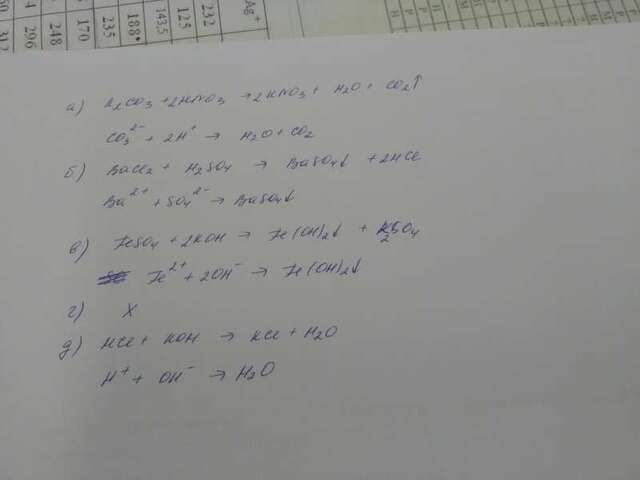 Ag+
232
125
143,5
188*
235
170
248
296
312
Н Р Р Н Р
а) K2CO3 + 2HNO3 → 2KNO3 + H2O + CO2↑
CO3 2- + 2H+ → H2O + CO2
б) BaCl2 + H2SO4 → BaSO4↓ + 2HCl
Ba2+ + SO4 2- → BaSO4↓
в) FeSO4 + 2KOH → Fe(OH)2↓ + K2SO4
Fe2+ + 2OH- → Fe(OH)2↓
г) X
д) HCl + KOH → KCl + H2O
H+ + OH- → H2O